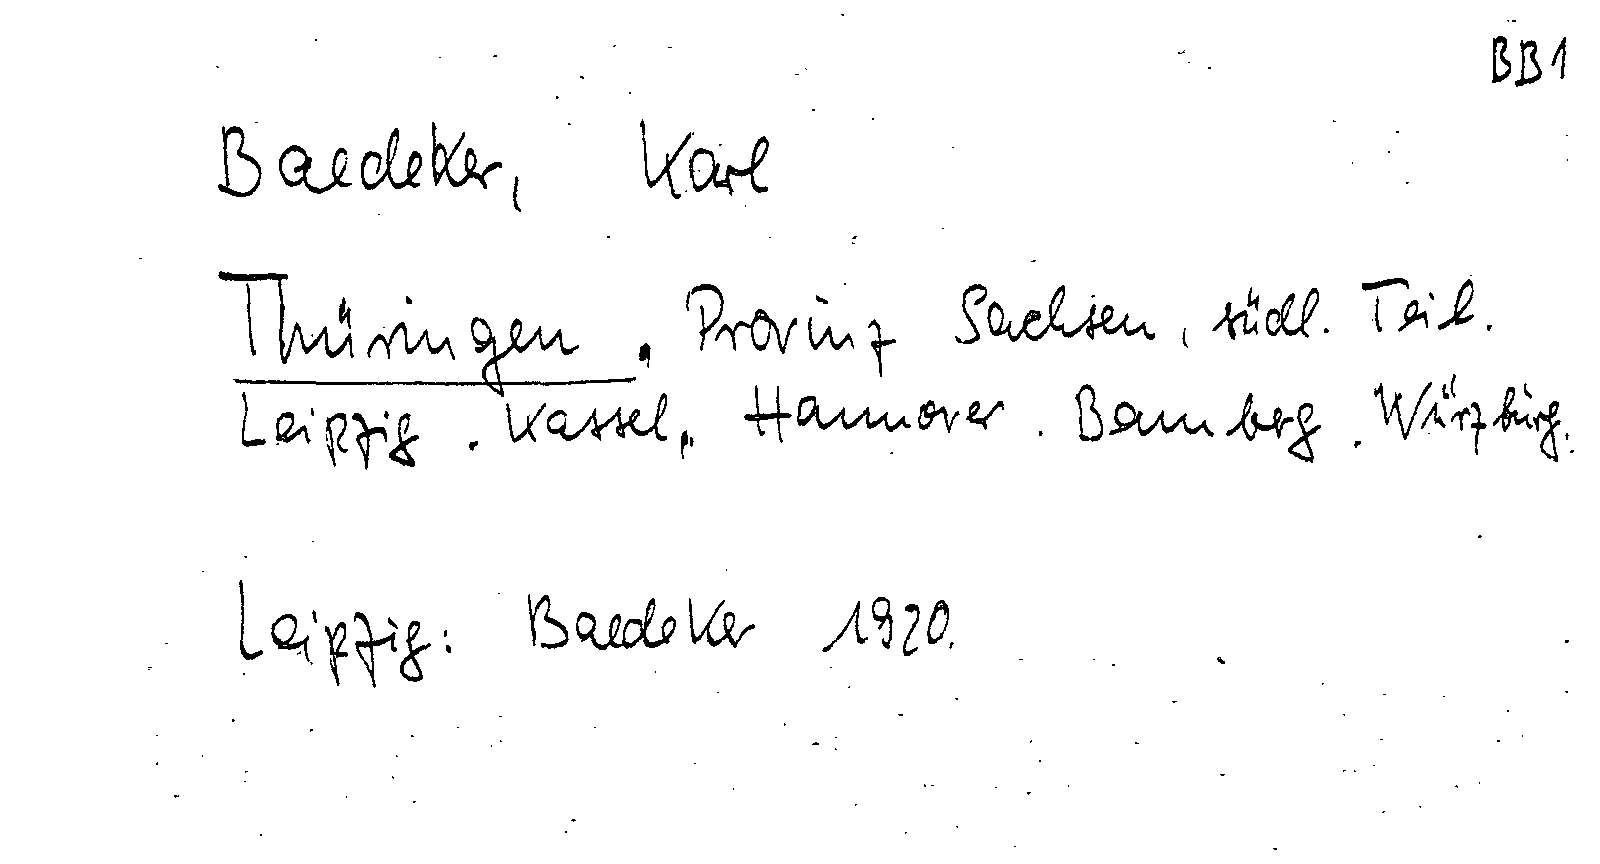 BB1
Baedeker, Karl
Thüringen. Provinz Sachsen, südl. Teil.
Leipzig. Kassel. Hannover. Bamberg. Würzburg.
Leipzig: Baedeker 1920.